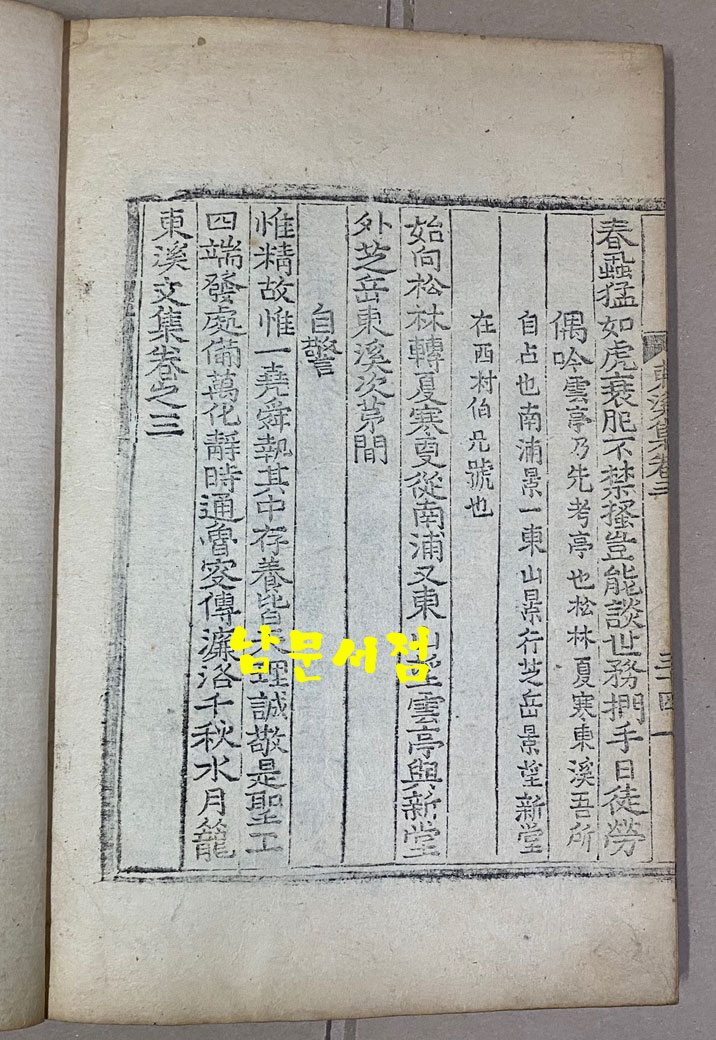 東溪集卷三
三十四
春蝨猛如虎衰肥不禁搔豈能談世務捫手日徒勞
偶吟雲亭乃先考亭也松林夏寒東溪吾所
自占也南浦景一東山景行芝岳景堂新堂
在西村伯兄號也
始向松林轉夏寒更從南浦又東山堂雲亭與新堂
外芝岳東溪次茅間
自警
惟精故惟一堯舜執其中存養皆天理誠敬是聖工
四端發處備萬化靜時通魯叟傳濂洛千秋水月籠
東溪文集卷之三
남문서점